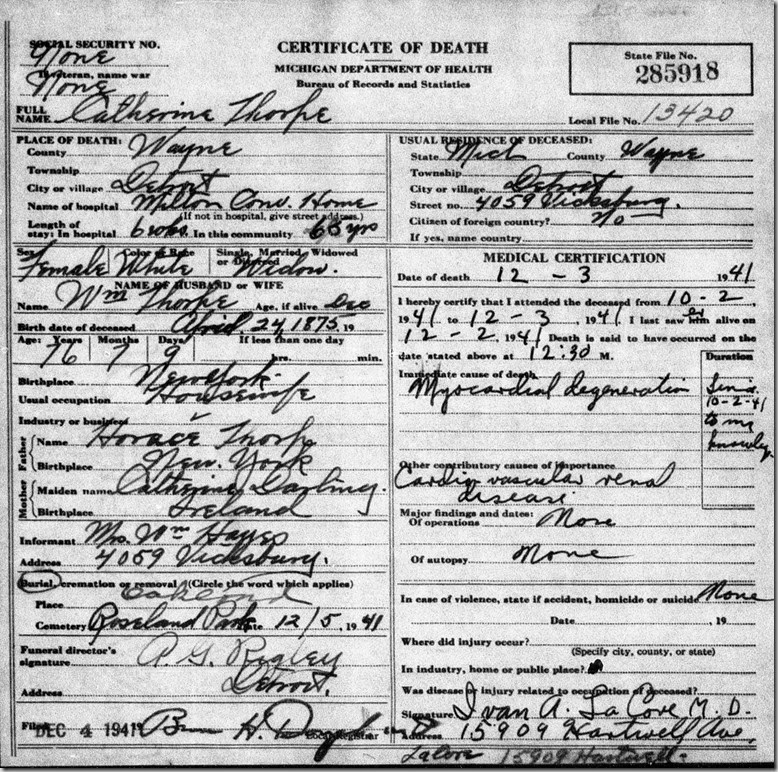 CERTIFICATE OF DEATH
MICHIGAN DEPARTMENT OF HEALTH
Bureau of Records and Statistics
State File No.
285918
Local File No. 13420
SOCIAL SECURITY NO.
None
If veteran, name war
None
FULL NAME Catherine Thorpe
PLACE OF DEATH:
County Wayne
Township
City or village Detroit
Name of hospital Milton Conv. Home
(If not in hospital, give street address.)
Length of stay: In hospital 6 wks. In this community 65 yrs
USUAL RESIDENCE OF DECEASED:
State Mich County Wayne
Township
City or village Detroit
Street no. 4059 Vicksburg.
Citizen of foreign country? No
If yes, name country
Sex Color or Race Single, Married, Widowed or Divorced
Female White Widow.
NAME OF HUSBAND OR WIFE
Name Wm Thorpe Age, if alive Dec
Birth date of deceased April 24, 1875, 19
Age: Years Months Days If less than one day
76 7 9 hrs. min.
Birthplace New York.
Usual occupation Housewife
Industry or business
Father
Name Horace Thorpe
Birthplace New York
Mother
Maiden name Catherine Darling.
Birthplace Ireland
Informant Mrs. Wm Hayes
Address 4059 Vicksburg.
Burial, cremation or removal (Circle the word which applies)
Place Oakland
Cemetery Roseland Park Date 12/5, 1941
Funeral director's signature A. G. Rigley
Address Detroit.
Filed DEC 4 1941
Local Registrar
MEDICAL CERTIFICATION
Date of death 12 - 3 1941
I hereby certify that I attended the deceased from 10-2,
1941 to 12-3, 1941. I last saw her alive on
12-2, 1941 Death is said to have occurred on the
date stated above at 12:30 M.
Immediate cause of death
Duration
Myocardial degeneration
Since
10-2-41
to my
knowledge
Other contributory causes of importance
Cardio vascular renal
disease
Major findings and dates:
Of operations None
Of autopsy None
In case of violence, state if accident, homicide or suicide None
Date , 19
Where did injury occur?
(Specify city, county, or state)
In industry, home or public place?
Was disease or injury related to occupation of deceased?
Signature Ivan A. LaCore M.D.
Address 15909 Hartwell Ave.
LaCore 15909 Hartwell.